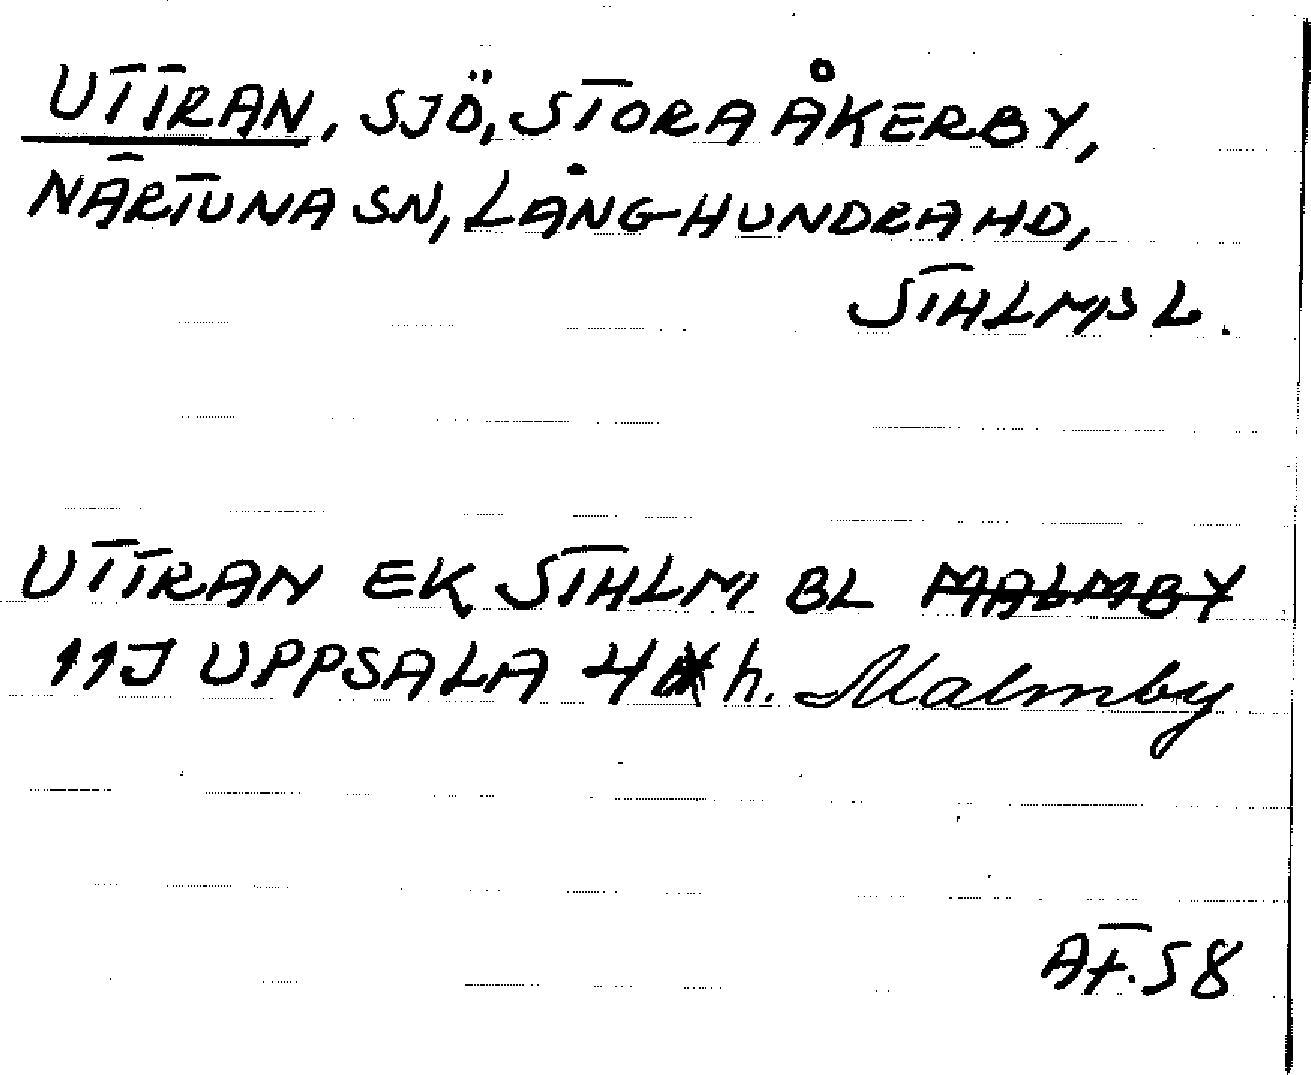 UTTRAN, SJÖ, STORA ÅKERBY,
NÄRTUNA SN, LÅNGHUNDRA HD,
STHLMS L.
UTTRAN EK STHLM BL MALMBY
11J UPPSALA 4 h. Malmby
AF.58